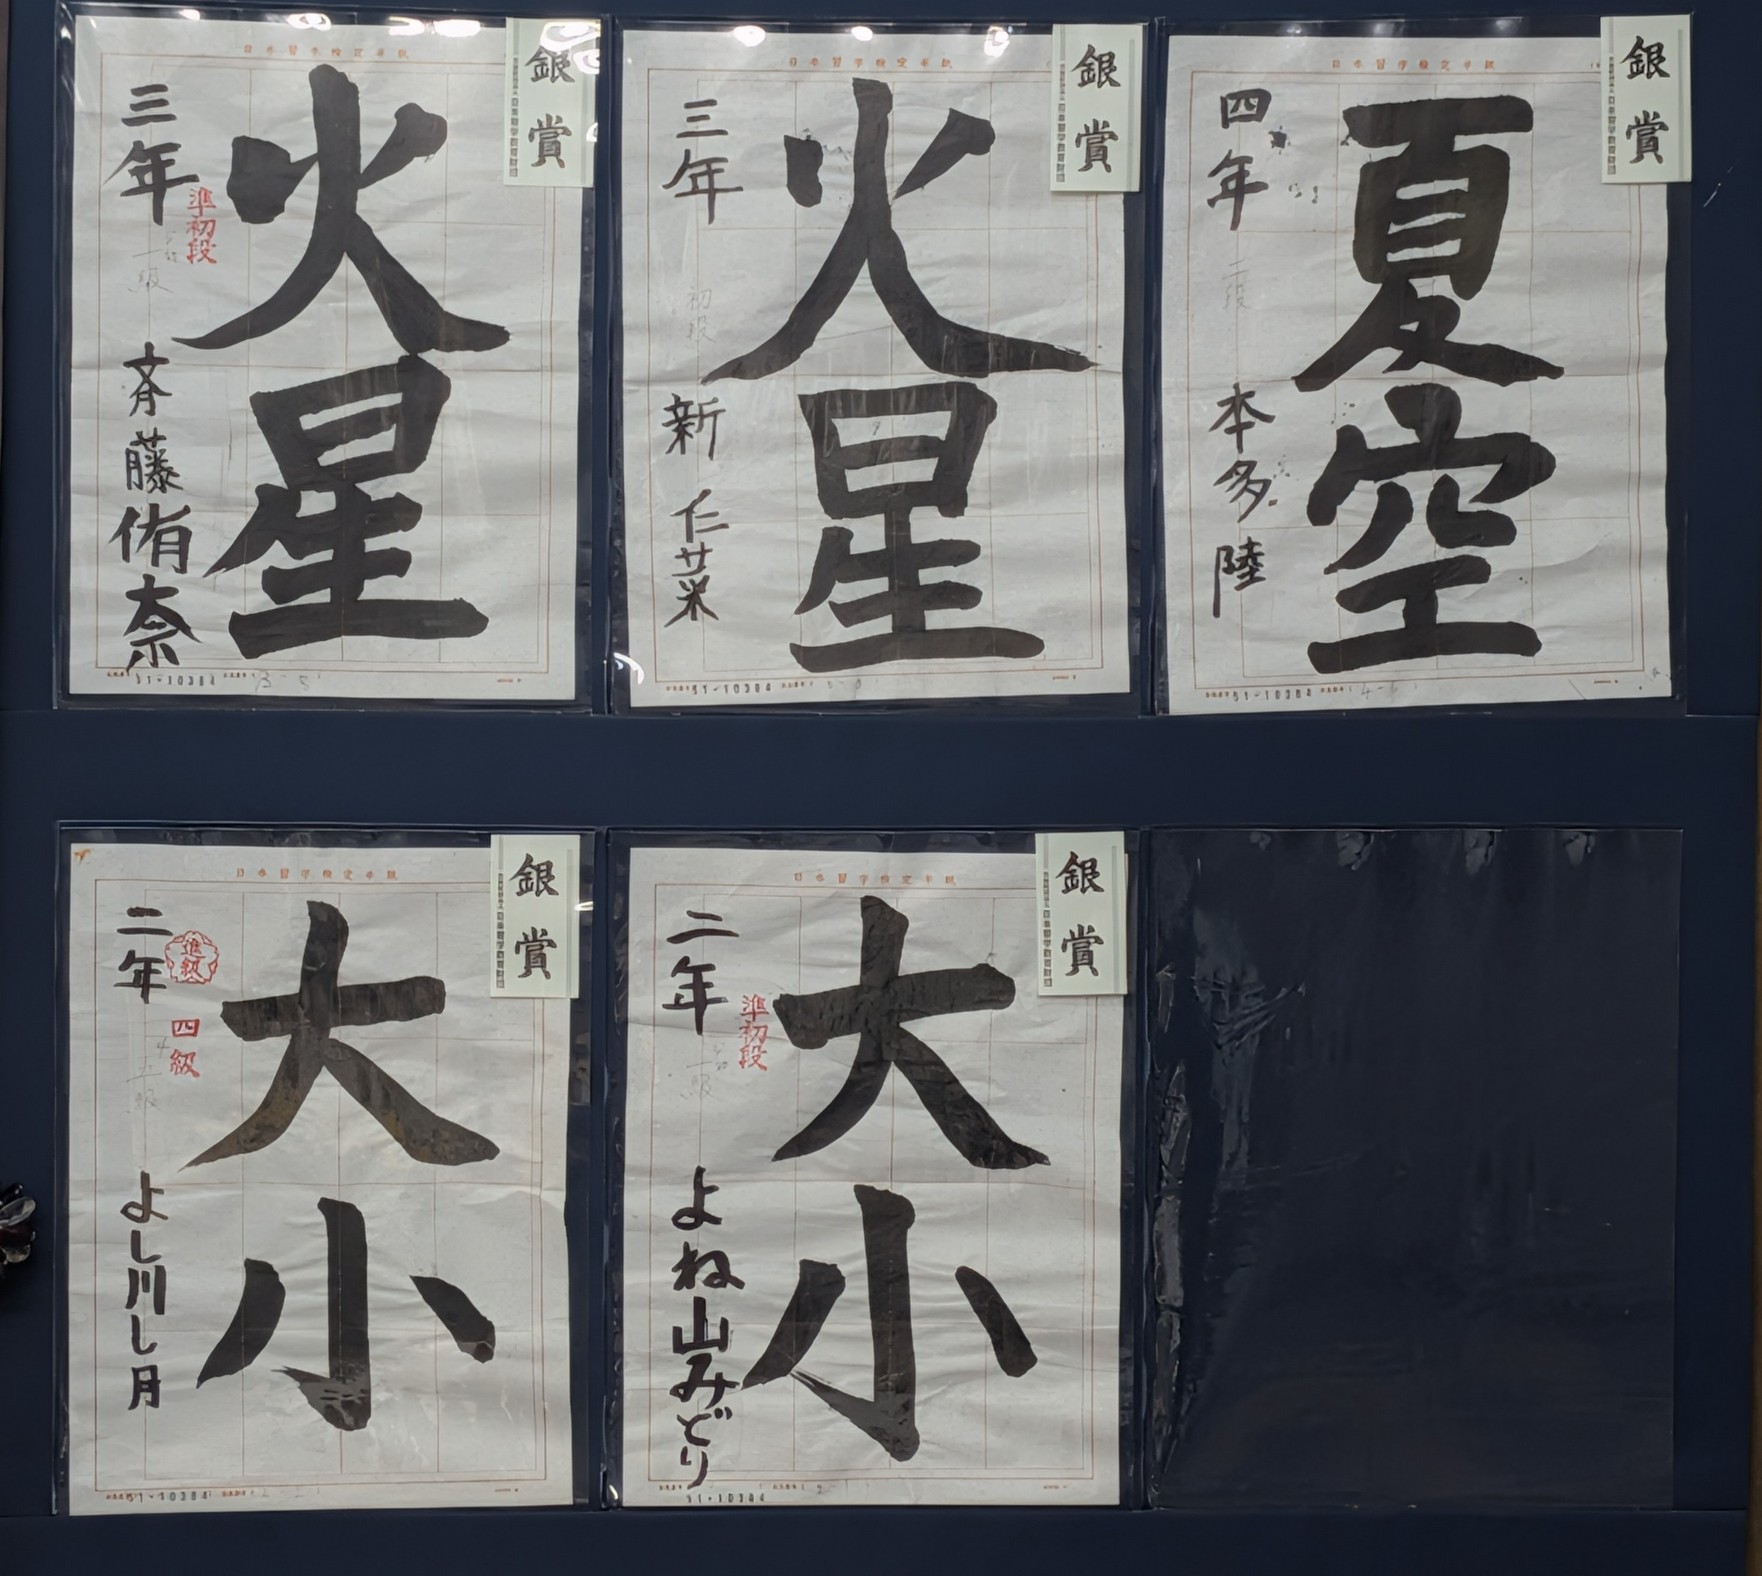 日本習字検定半紙
銀賞
火星
三年
準初段
一級
斉藤侑奈
51-10384
日本習字検定半紙
銀賞
火星
三年
初段
新 仁菜
51-10384
日本習字検定半紙
銀賞
夏空
四年
二段
本多陸
51-10384
日本習字検定半紙
銀賞
大小
二年
進級
四級
五級
よし川し月
51-10384
日本習字検定半紙
銀賞
大小
二年
準初段
一級
よね山みどり
51-10384